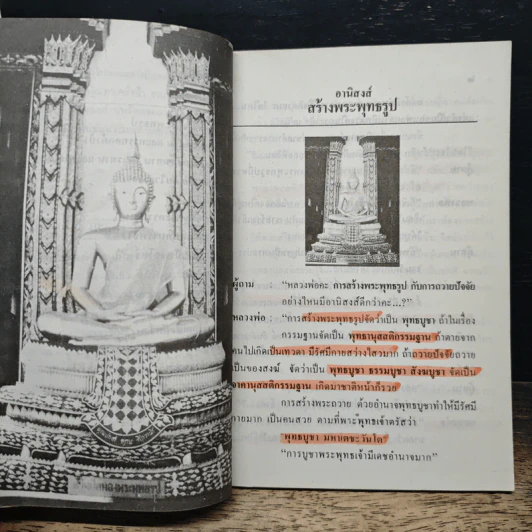 อานิสงส์
สร้างพระพุทธรูป
ผู้ถาม : "หลวงพ่อคะ การสร้างพระพุทธรูป กับการถวายปัจจัย
อย่างไหนมีอานิสงส์ดีกว่าคะ...?"
หลวงพ่อ : "การสร้างพระพุทธรูปจัดว่าเป็น พุทธบูชา ถ้าในเรื่อง
กรรมฐานจัดเป็น พุทธานุสสติกรรมฐาน ถ้าตายจาก
คนไปเกิดเป็นเทวดา มีรัศมีกายสว่างไสวมาก ถ้าถวายปัจจัยถวาย
เป็นของสงฆ์ จัดว่าเป็น พุทธบูชา ธรรมบูชา สังฆบูชา จัดเป็น
จาคานุสสติกรรมฐาน เกิดมาชาติหน้าก็รวย
การสร้างพระถวาย ด้วยอำนาจพุทธบูชาทำให้มีรัศมี
กายมาก เป็นคนสวย ตามที่พระพุทธเจ้าตรัสว่า
พุทธบูชา มหาเตชะวันโต
"การบูชาพระพุทธเจ้ามีเดชอำนาจมาก"